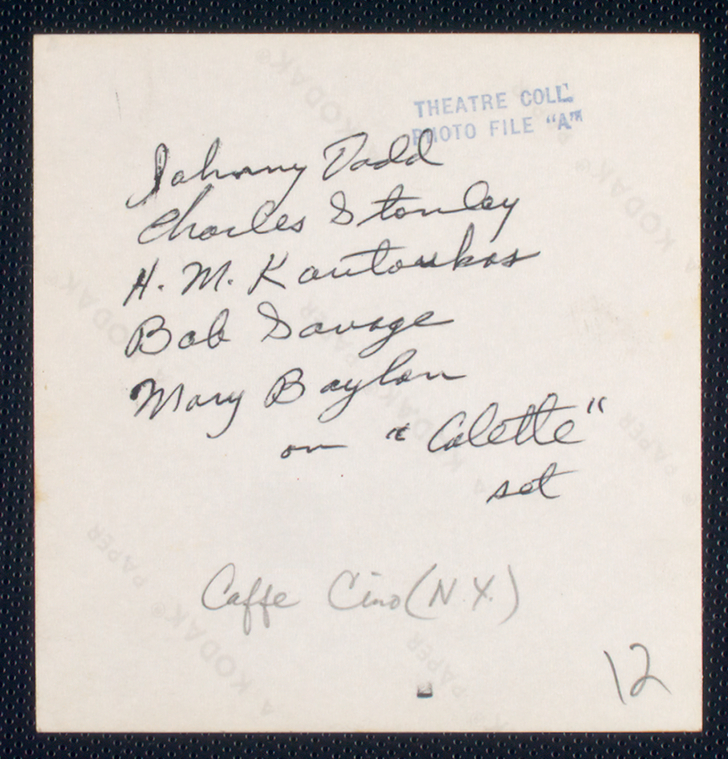 THEATRE COLL.
PHOTO FILE "A"
Johnny Dodd
Charles Stanley
H. M. Koutoukas
Bob Savage
Mary Boylan
on "Colette"
set
Caffe Cino (N.Y.)
12
A KODAK® PAPER